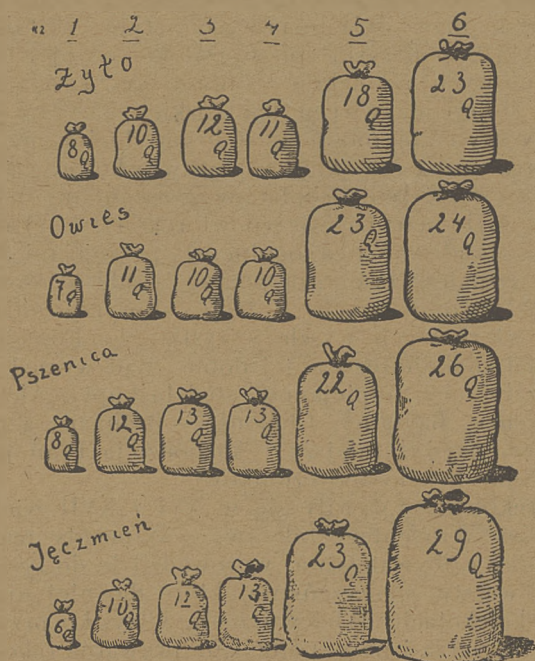 № 1 2 3 4 5 6
Żyto
8 Q 10 Q 12 Q 11 Q 18 Q 23 Q
Owies
7 Q 11 Q 10 Q 10 Q 23 Q 24 Q
Pszenica
8 Q 12 Q 13 Q 13 Q 22 Q 26 Q
Jęczmień
6 Q 10 Q 12 Q 13 Q 23 Q 29 Q